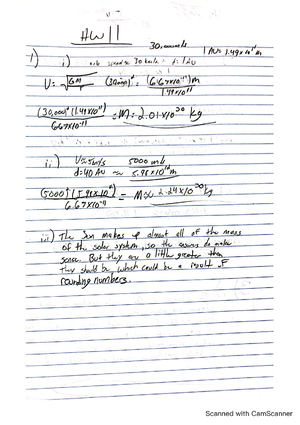 HW 11
30,000 m/s
1 AU = 1.49x10^11 m
1) i) speed = 30 km/s d = 1 AU
V = √GM/r (30,000)² = (6.67x10^-11)m / 1.49x10^11
(30,000)²(1.49x10^11) / 6.67x10^-11 = M = 2.01x10^30 kg
ii) V = 5km/s 5000 m/s
d = 40 AU ~ 5.98x10^12 m
(5000)²(5.98x10^12) / 6.67x10^-11 = M ≈ 2.24x10^30 kg
iii) The Sun makes up almost all of the mass
of the solar system, so the answers do make
sense. But they are a little greater then
they should be, which could be a result of
rounding numbers.
Scanned with CamScanner